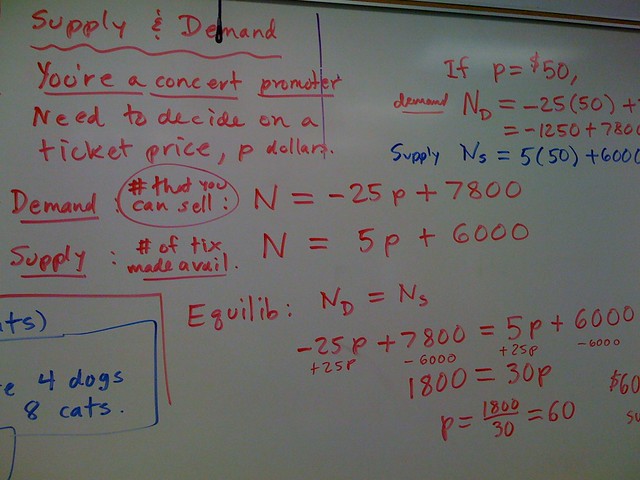 Supply & Demand
You're a concert promoter
Need to decide on a
ticket price, p dollars.
Demand : # that you can sell : N = -25p + 7800
Supply : # of tix made avail. N = 5p + 6000
Equilib: N_D = N_S
-25p + 7800 = 5p + 6000
+25p -6000 +25p -6000
1800 = 30p
p = 1800/30 = 60
If p = $50,
demand N_D = -25(50) +
= -1250 + 7800
Supply N_S = 5(50) + 6000
$60
su
ts)
e 4 dogs
8 cats.